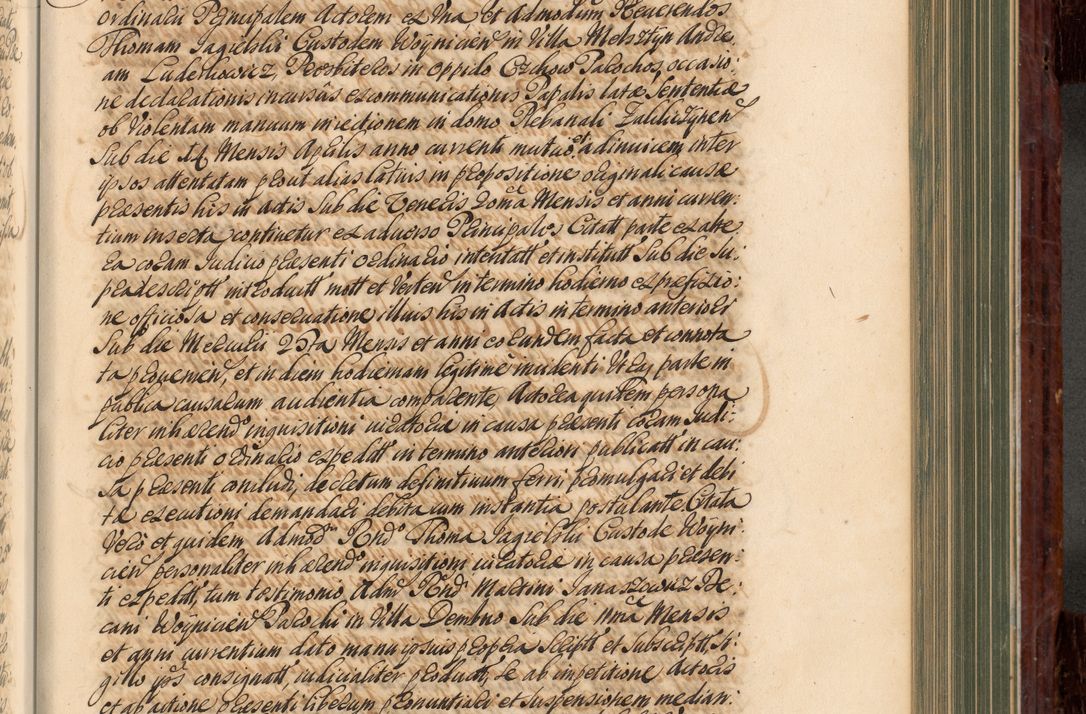 ordinarii Principalem Actorem ex una et Admodum Reverendos
Thomam Jagielski Custodem Woynicien in Villa Melsztyn Andre:
am Luderkowicz, Presbiteros in oppido Czchow Parochos, occasio:
ne declarationis incursus excommunicationis Papalis latæ Sententiæ
ob violentam manuum iniectionem in domo Plebanali Zaliliczynen
Sub die 14 Mensis Aprilis anno currenti mutuo et adinvicem inter
ipsos attentatam prout alias latius in propositione originali causæ
præsentis his in actis Sub die Veneris Mensis et anni curren:
tium inserta continetur ex adverso Principales Citatt parte ex alte
ra coram Judicio præsenti ordinario intentatt et institutt Sub die Su:
pradescriptt introductt mott et verten in termino hodierno ex præfixio:
ne officiosa et conservatione illius his in Actis in termino anteriori
Sub die Mercurii Mensis et anni eorundem facta et connota
ta provenien, et in diem hodiernam legitime incidenti Utrq parte in
publica causarum audientia comparente, Actorea quidem persona
liter inhærendo inquisitioni iuratoriæ in causa præsenti coram Judi:
cio præsenti ordinario expeditt in termino anteriori publicatt in cau:
sa præsenti concludi, decretum definitivum ferri, promulgari et debi
ta executioni demandari debita cum instantia postulante Citata
Vero et quidem Admod Rndo Thoma Jagielski Custode Woyni
cien personaliter inhærendo inquisitioni iuratoriæ in causa præsen:
ti expeditt, tum testimonio Adm Rndi Martini Januszowicz De:
cani Woynicien Parochi in Villa Dembno Sub die Mensis
et anni currentium dato manu ipsius propria Scriptt et Subscriptt, Si:
gillo ips consignatt, iudicialiter productt, Se ab impetitione Actoris
et ab actione præsenti liberum pronuntiari et suspensionem median: